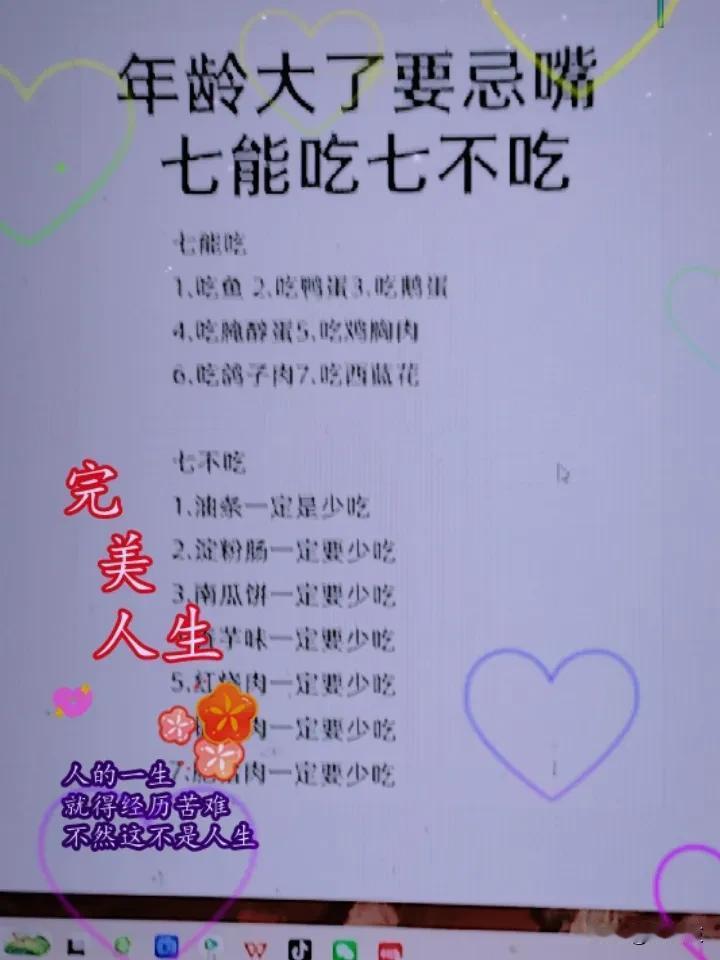 年龄大了要忌嘴
七能吃七不吃
七能吃
1.吃鱼 2.吃鸭蛋3.吃鹅蛋
4.吃腌醇蛋5.吃鸡胸肉
6.吃鸽子肉7.吃西蓝花
七不吃
1.油条一定是少吃
2.淀粉肠一定要少吃
3.南瓜饼一定要少吃
芋味一定要少吃
5.红烧肉一定要少吃
肉一定要少吃
7.肉一定要少吃
完
美
人生
人的一生
就得经历苦难
不然这不是人生